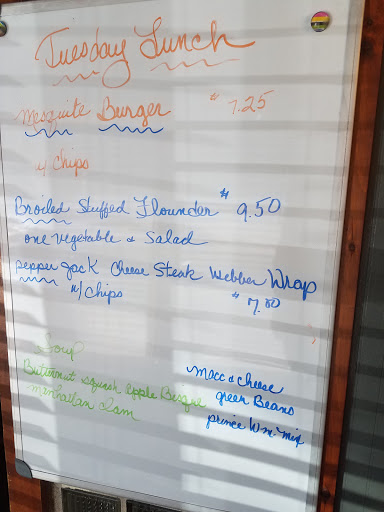 Tuesday Lunch
Mesquite Burger $7.25
w/ Chips
Broiled Stuffed Flounder $9.50
one vegetable & Salad
pepper jack Cheese Steak Webber Wrap
w/ Chips $7.80
Soup
Butternut squash apple Bisque
manhattan clam
macc & cheese
green Beans
prince Wm. mix